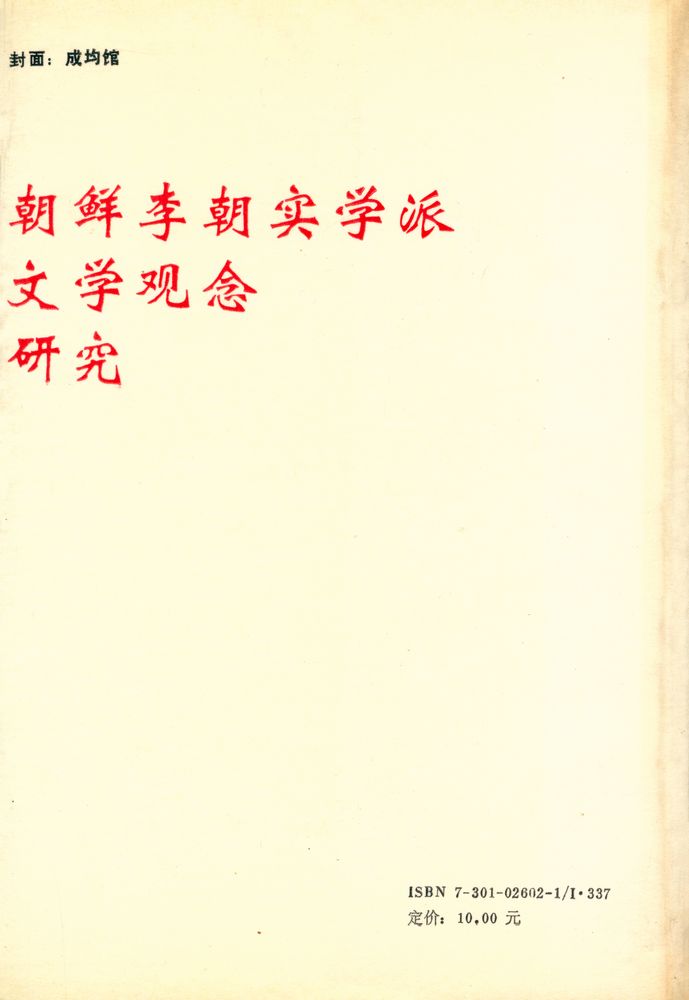 封面：成均馆
朝鲜李朝实学派
文学观念
研究
ISBN 7-301-02602-1/I·337
定价：10.00 元